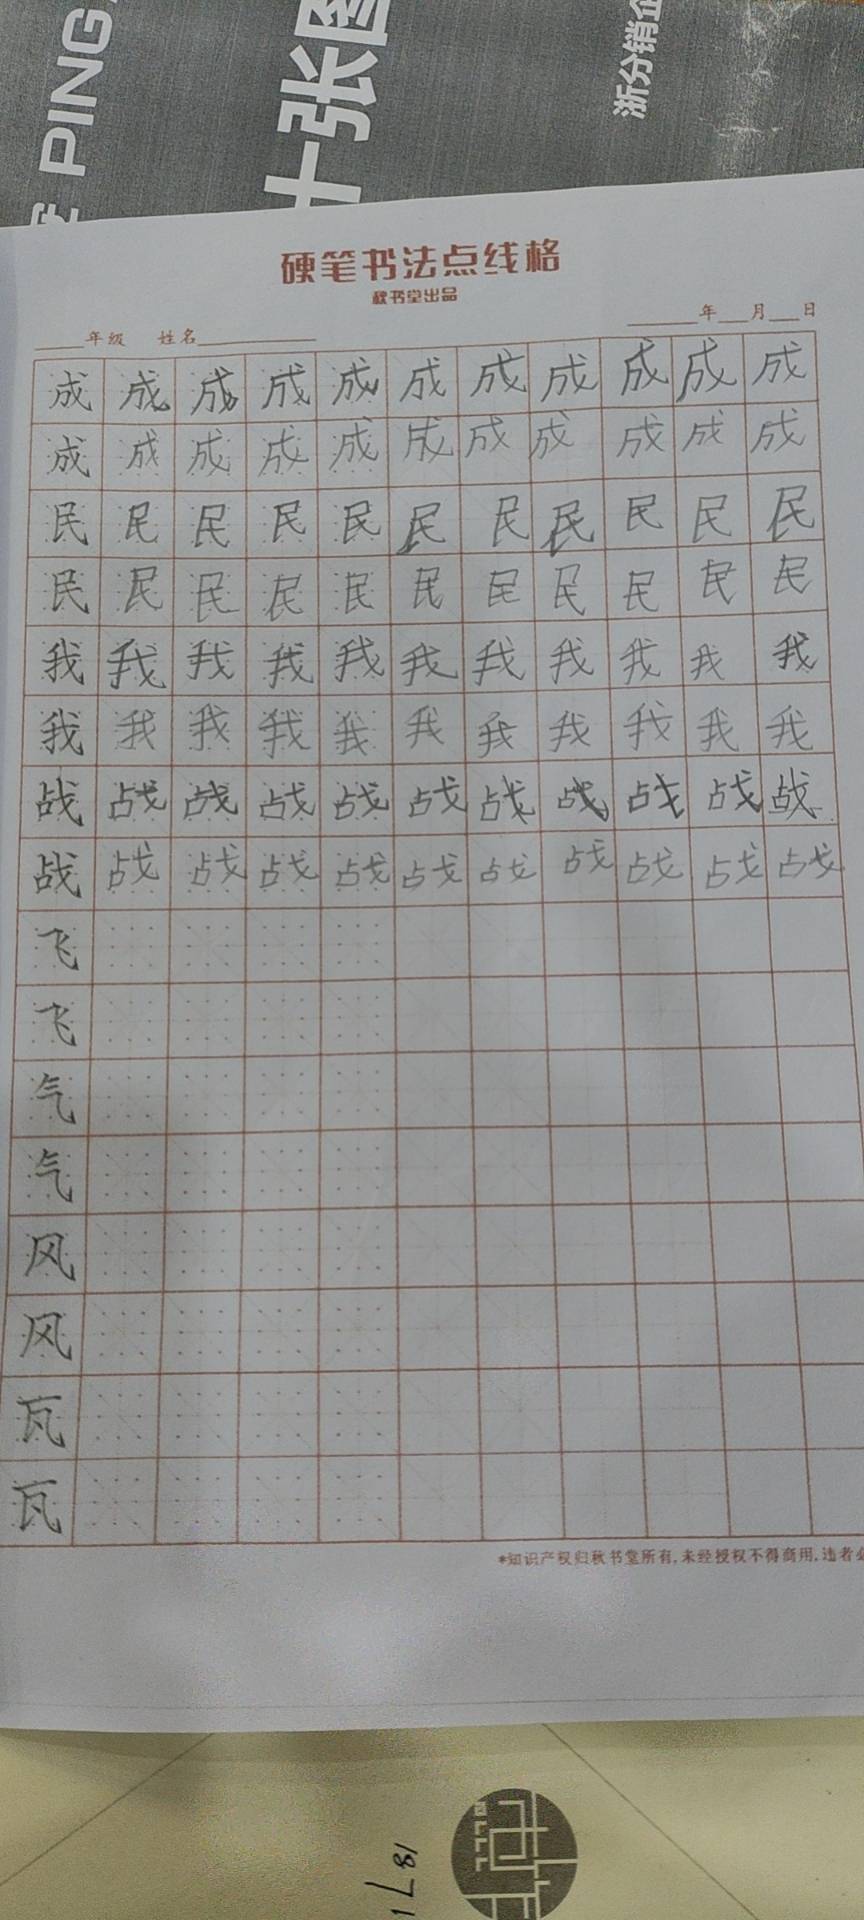 PING
十张图
浙分销企
硬笔书法点线格
秋书堂出品
年级 姓名 年 月 日
成 成 成 成 成 成 成 成 成 成 成
成 成 成 成 成 成 成 成 成 成 成
民 民 民 民 民 民 民 民 民 民 民
民 民 民 民 民 民 民 民 民 民 民
我 我 我 我 我 我 我 我 我 我 我
我 我 我 我 我 我 我 我 我 我 我
战 战 战 战 战 战 战 战 战 战 战
战 战 战 战 战 战 战 战 战 战 战
飞
飞
气
气
风
风
瓦
瓦
*知识产权归秋书堂所有,未经授权不得商用,违者必